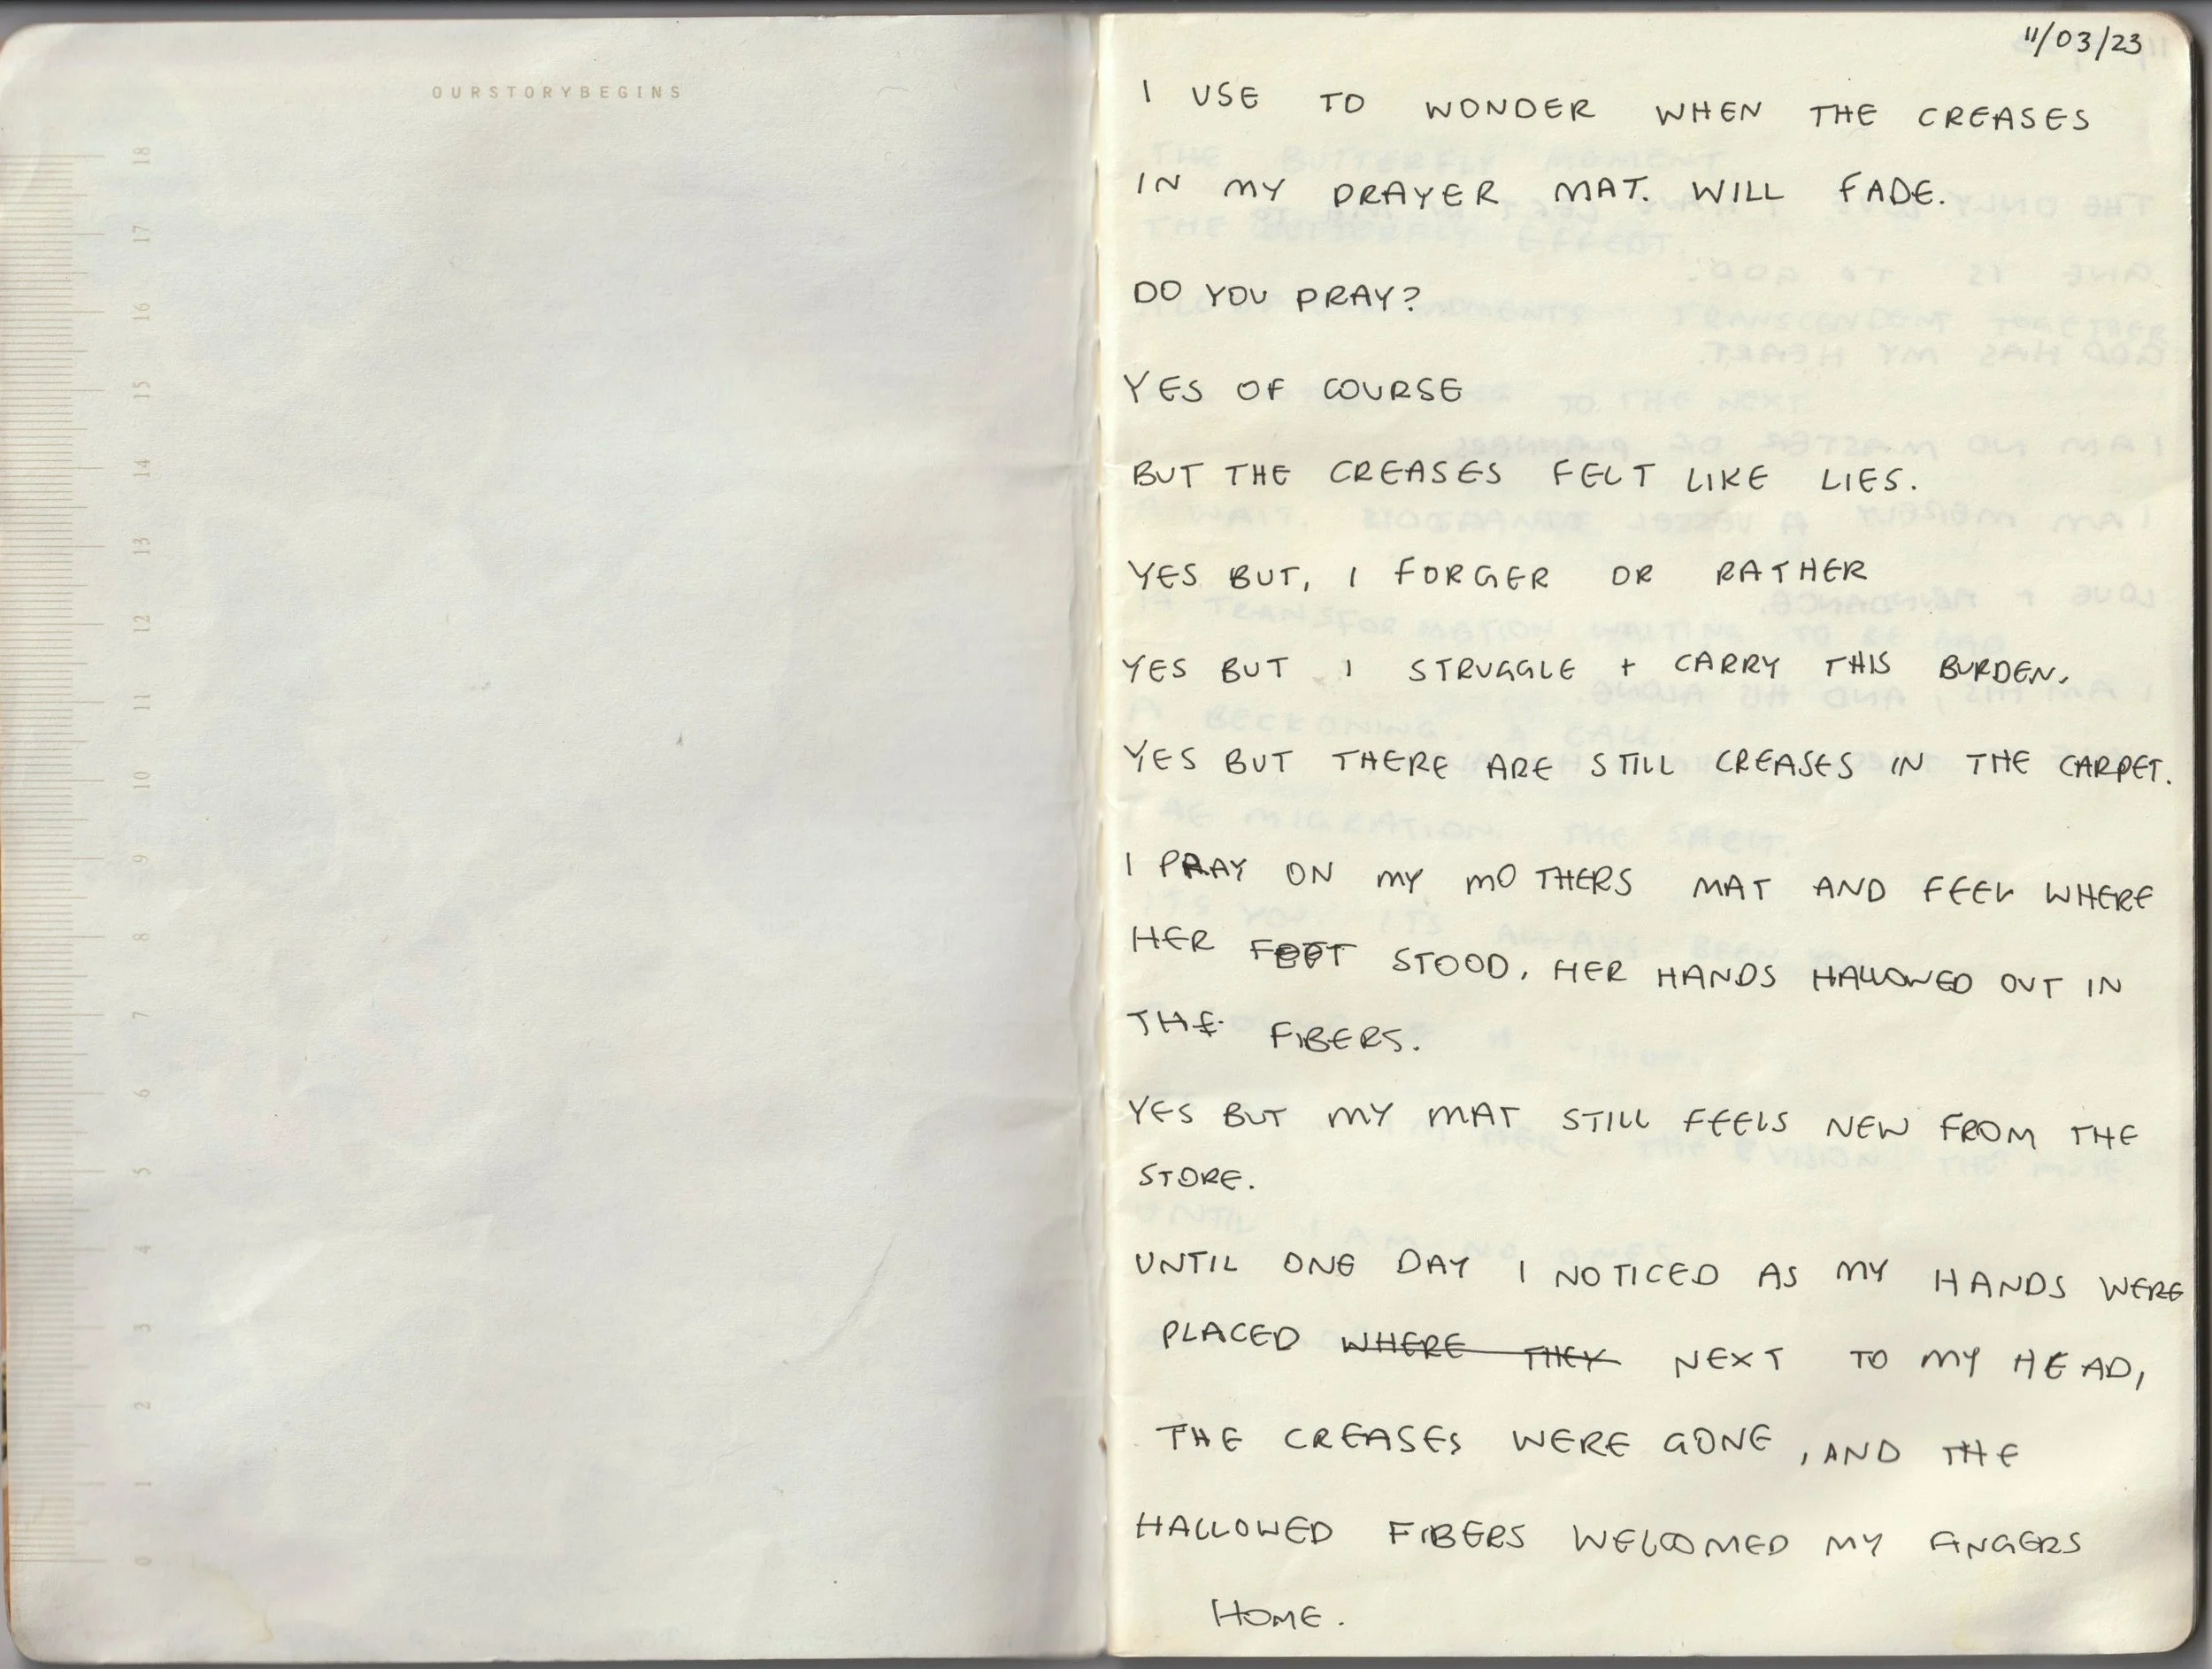 OURSTORYBEGINS
18
17
16
15
14
13
12
11
10
9
8
7
6
5
4
3
2
1
0
11/03/23
I USE TO WONDER WHEN THE CREASES
IN MY PRAYER MAT. WILL FADE.
DO YOU PRAY?
YES OF COURSE
BUT THE CREASES FELT LIKE LIES.
YES BUT, I FORGER OR RATHER
YES BUT I STRUGGLE + CARRY THIS BURDEN.
YES BUT THERE ARE STILL CREASES IN THE CARPET.
I PRAY ON MY MOTHERS MAT AND FEEL WHERE
HER FEET STOOD, HER HANDS HALLOWED OUT IN
THE FIBERS.
YES BUT MY MAT STILL FEELS NEW FROM THE
STORE.
UNTIL ONE DAY I NOTICED AS MY HANDS WERE
PLACED WHERE THEY NEXT TO MY HEAD,
THE CREASES WERE GONE, AND THE
HALLOWED FIBERS WELCOMED MY FINGERS
HOME.